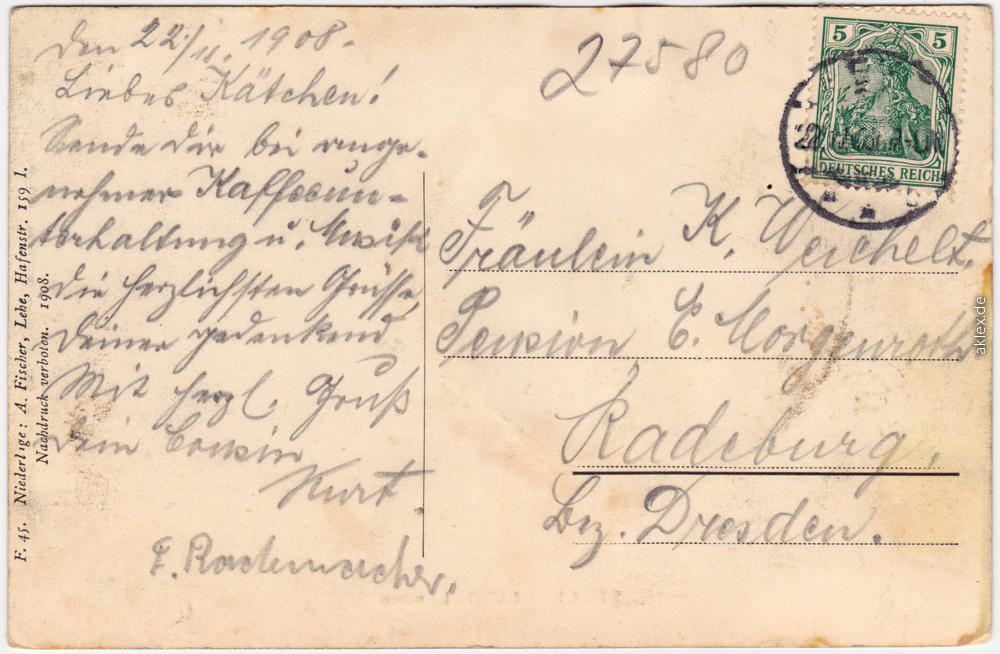 den 22./11. 1908.
Liebes Kätchen!
Sende dir bei ange-
nehmer Kaffeeun-
terhaltung u. Musik
die herzlichsten Grüsse,
deiner gedenkend
Mit herzl. Gruß
dein Cousin
Kurt.
F. Rademacher.
27580
5 5
DEUTSCHES REICH
Fräulein K. Weichelt.
Pension E. Morgenroth
Radeburg,
Bez. Dresden.
F. 45. Niederlage: A. Fischer, Lehe, Hafenstr. 159 I.
Nachdruck verboten. 1908.
aklex.de